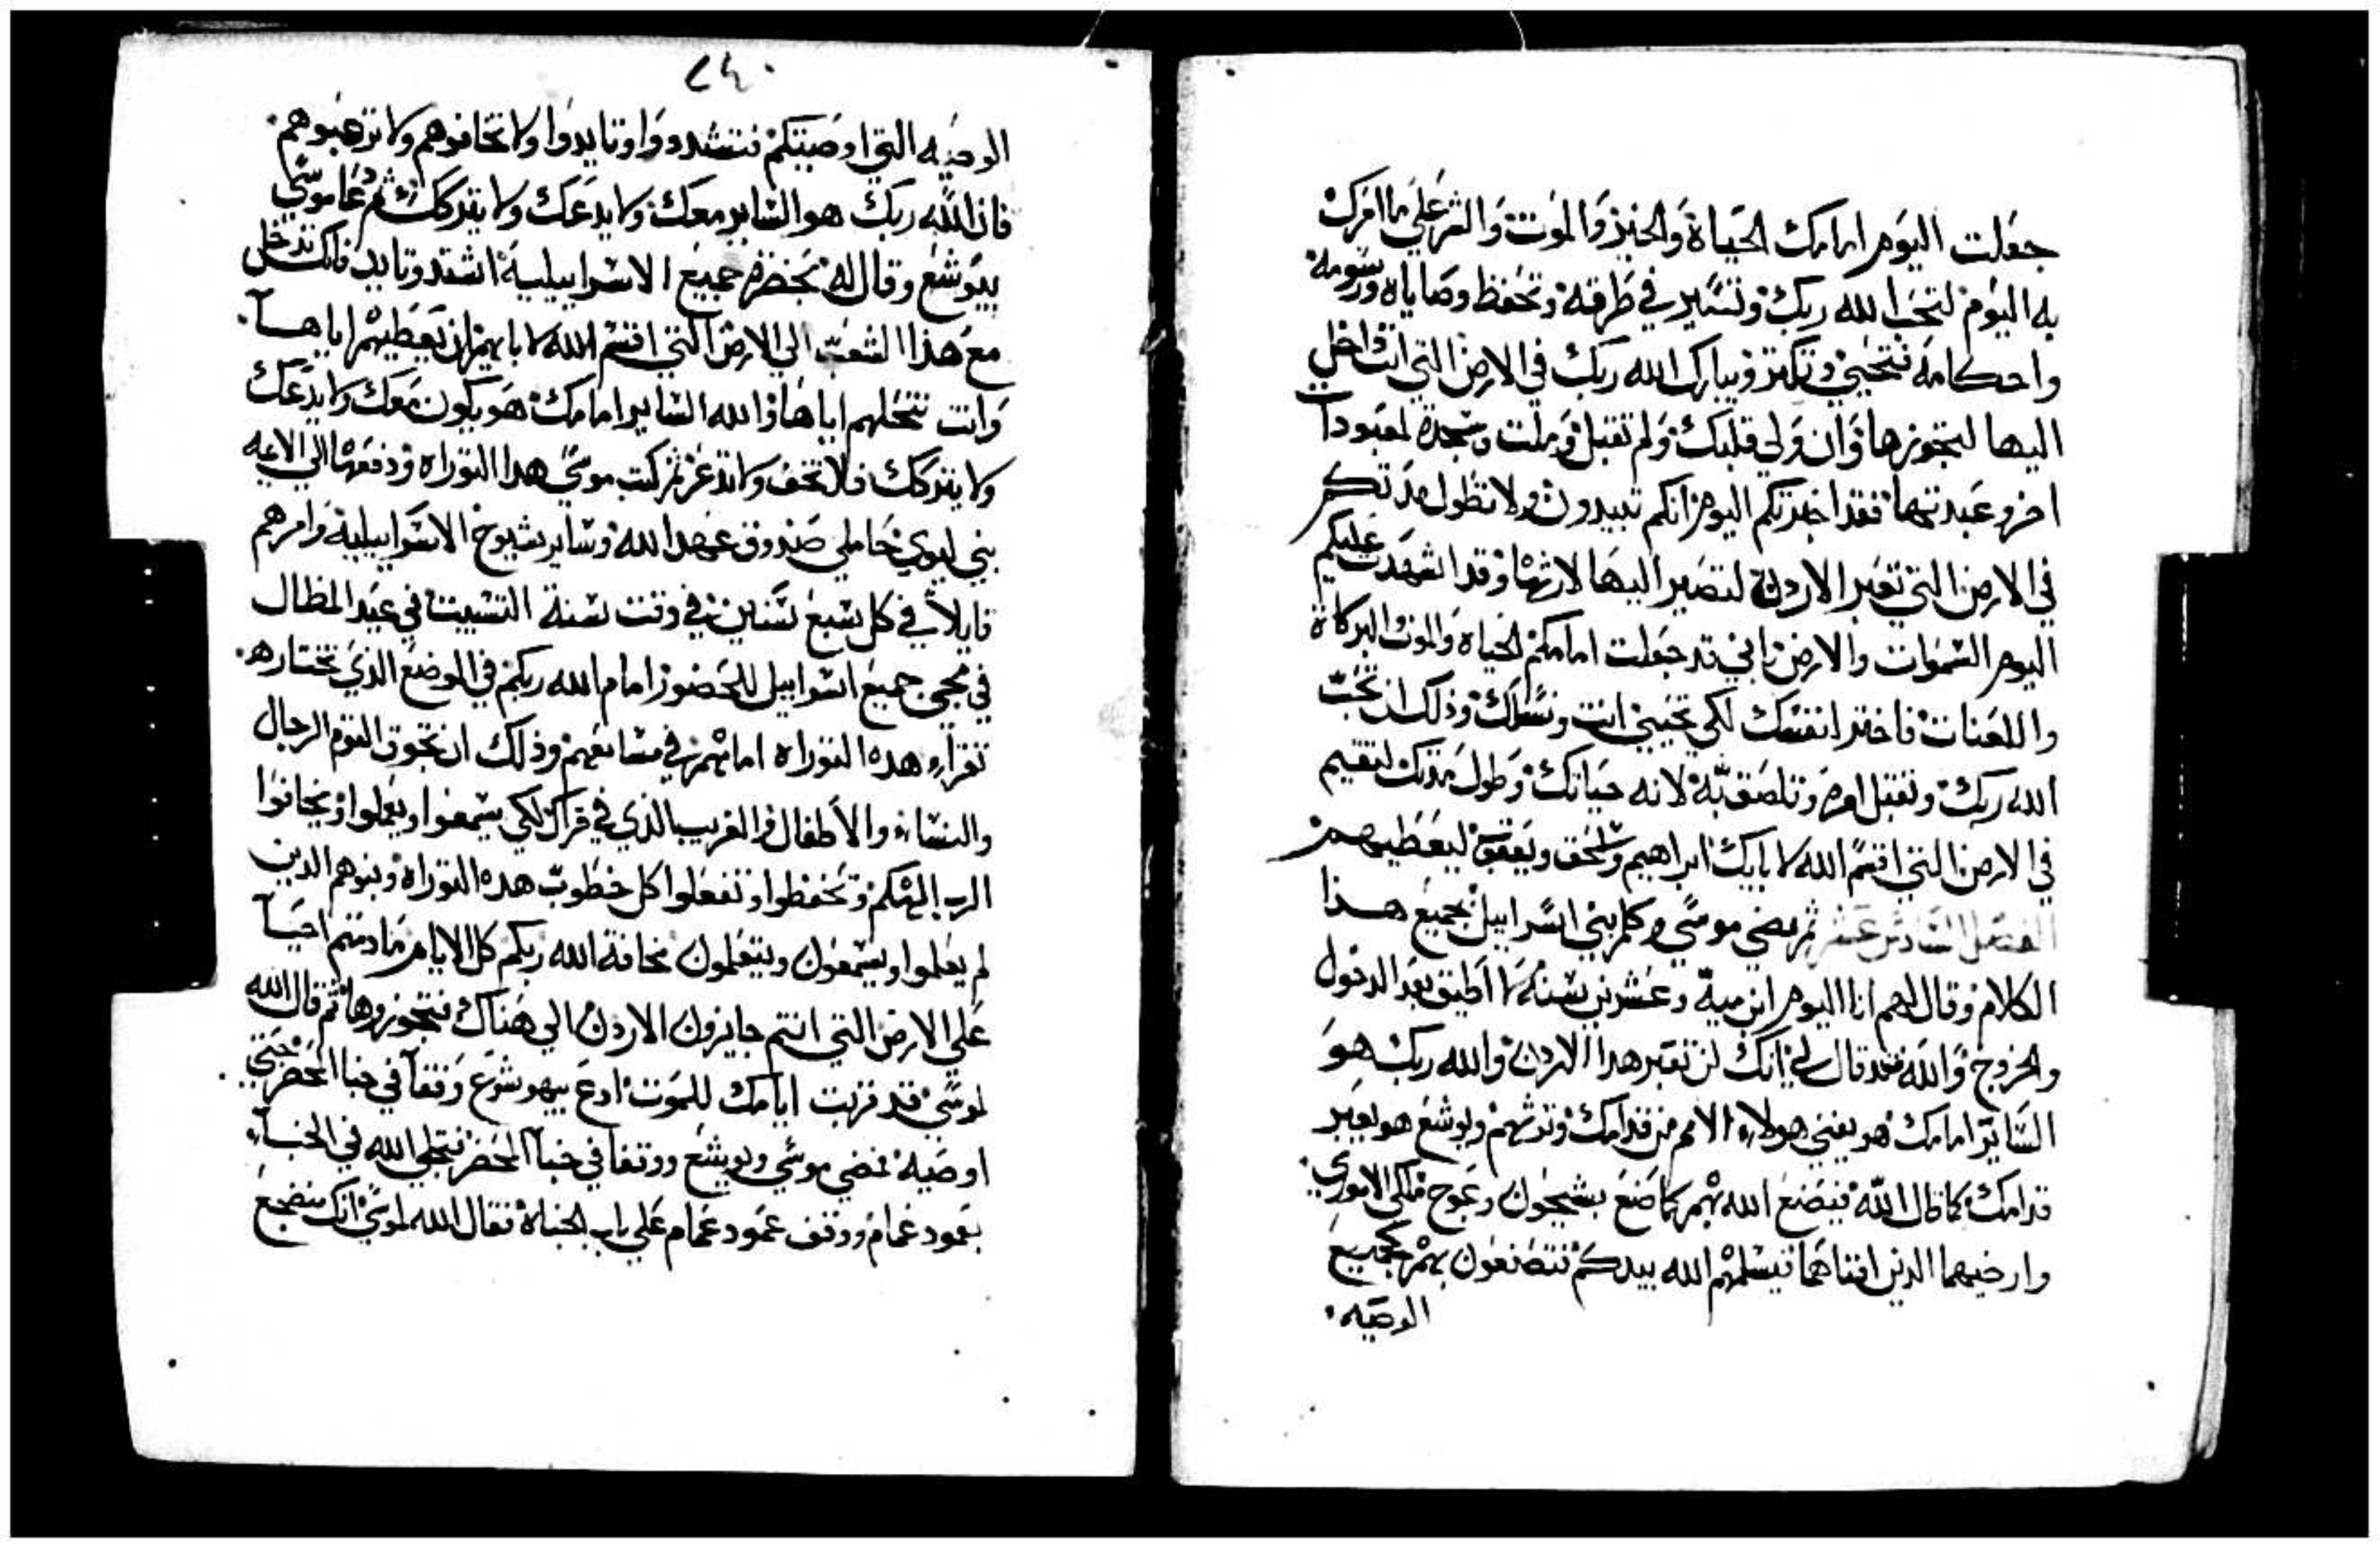 جعلت اليوم امامك الحياة والخير والموت والشر علي ما امرك
به اليوم لتحب الله ربك وتسير في طرقه وتحفظ وصاياه ورسومه
واحكامه فتحيي وتكثر ويباركك الله ربك في الارض التي انت داخل
اليها لتجوزها وان ولي قلبك ولم تقبل وملت وسجدة لمعبودات
اخر وعبدتها فقد اخبرتكم اليوم انكم تبيدون ولا تطول مدتكم
في الارض التي تعبر الاردن لتصير اليها لارثها وقد اشهدت عليكم
اليوم السموات والارض اني قد جعلت امامكم الحياه والموت البركاة
واللعنات فاختر لنفسك لكي تحيي انت ونسلك وذلك ان تحب
الله ربك وتقبل امره وتلصق به لانه حياتك وطول مدتك لتقيم
في الارض التي اقسم الله لابايك ابراهيم واسحق ويعقوب ليعطيهم
الفصل السادس عشر ثم مضي موسي وكلم بني اسراييل بجميع هذا
الكلام وقال لهم انا اليوم ابن مية وعشرين سنة لا اطيق بعد الدخول
والخروج والله فقد قال لي انك لن تعبر هدا الاردن والله ربك هو
الساير امامك هو يفني هولاء الامم من قدامك وترثهم ويوشع هو يعبر
قدامك كما قال الله فيصنع الله بهم كما صنع بسيحون وعوج ملكي الاموري
وارضيهما الدين افناهما فيسلمهم الله بيدكم فتصنعون بهم كجميع
الوصيه
٢٤٠
الوصيه التي اوصيتكم فتشددوا وتايدوا ولا تخافوهم ولا ترهبوهم
فان الله ربك هو الساير معك ولا يدعك ولا يتركك ثم دعا موسي
بيوشع وقال له بحضرة جميع الاسراييلية اشتد وتايد فانك تدخل
مع هذا الشعب الي الارض التي اقسم الله لابايهم ان يعطيهم اياها
وانت تنحلهم اياها والله الساير امامك هو يكون معك ولا يدعك
ولا يتركك فلا تخف ولا تدعر ثم كتب موسي هدا التوراه ودفعها الي الايمه
بني ليوي حاملي صندوق عهد الله وساير شيوخ الاسراييلية وامرهم
قايلا في كل سبع سنين في وقت سنة التسييت في عيد المظال
في مجي جميع اسراييل للحضور امام الله ربكم في الموضع الذي تختاره
تقراء هده التوراه امامهم في مسامعهم وذلك ان تجوق القوم الرجال
والنساء والاطفال والغريب الذي في قراك لكي يسمعوا ويعلموا ويخافوا
الرب الهكم وتحفظوا وتفعلوا كل خطوب هده التوراه وبنوهم الدين
لم يعلموا ويسمعون ويتعلمون مخافة الله ربكم كل الايام ما دمتم احيا
علي الارض التي انتم جايزون الاردن الي هناك فتجوزوها ثم قال الله
لموسي قد قربت ايامك للموت ادع بيهوشوع وقفا في خبا المحضر حتي
اوصيه فمضي موسي ويوشع ووقفا في خبا المحضر فتجلي الله في الخبا
بعمود غمام ووقف عمود غمام علي باب الخباة فقال الله لموسي انك منضجع